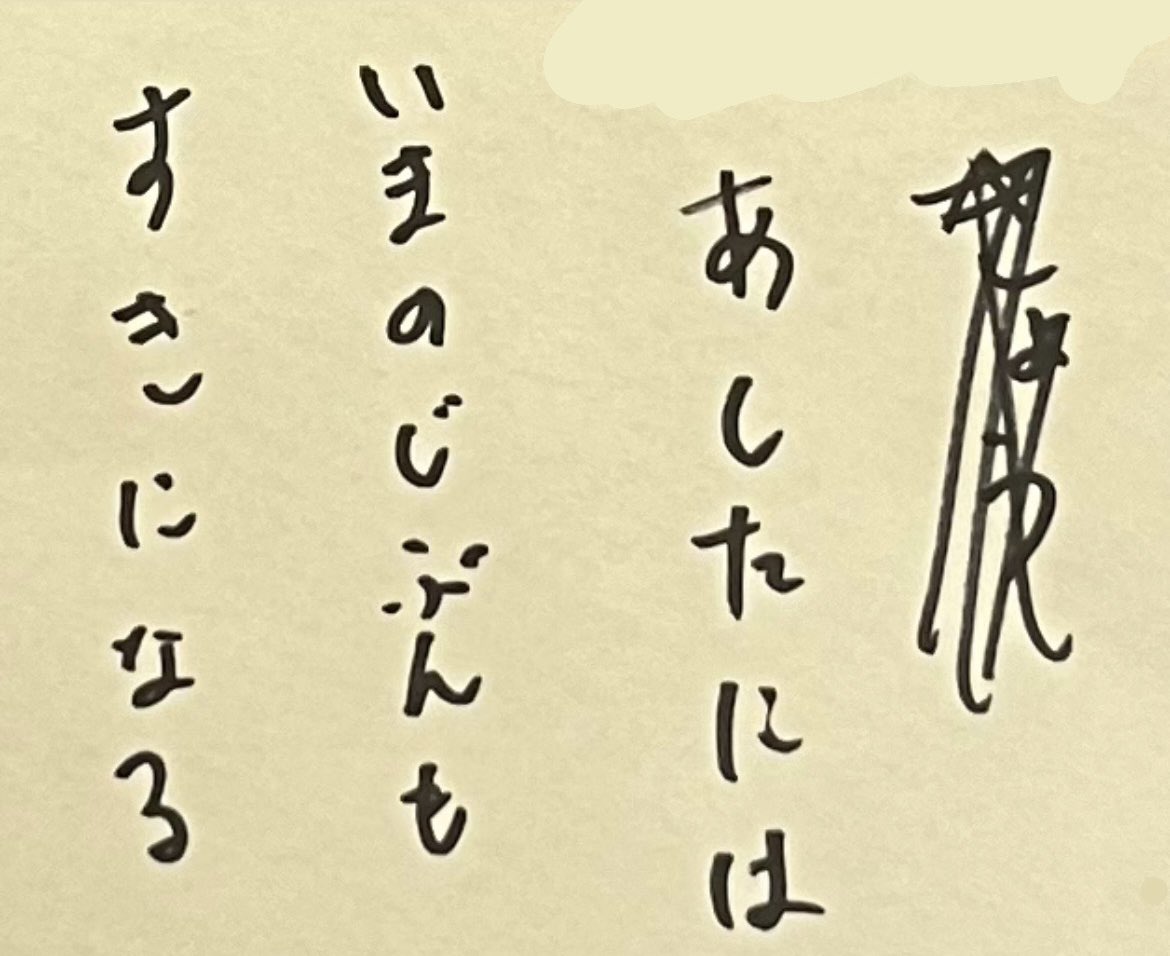 あしたには
いまのじぶんも
すきになる